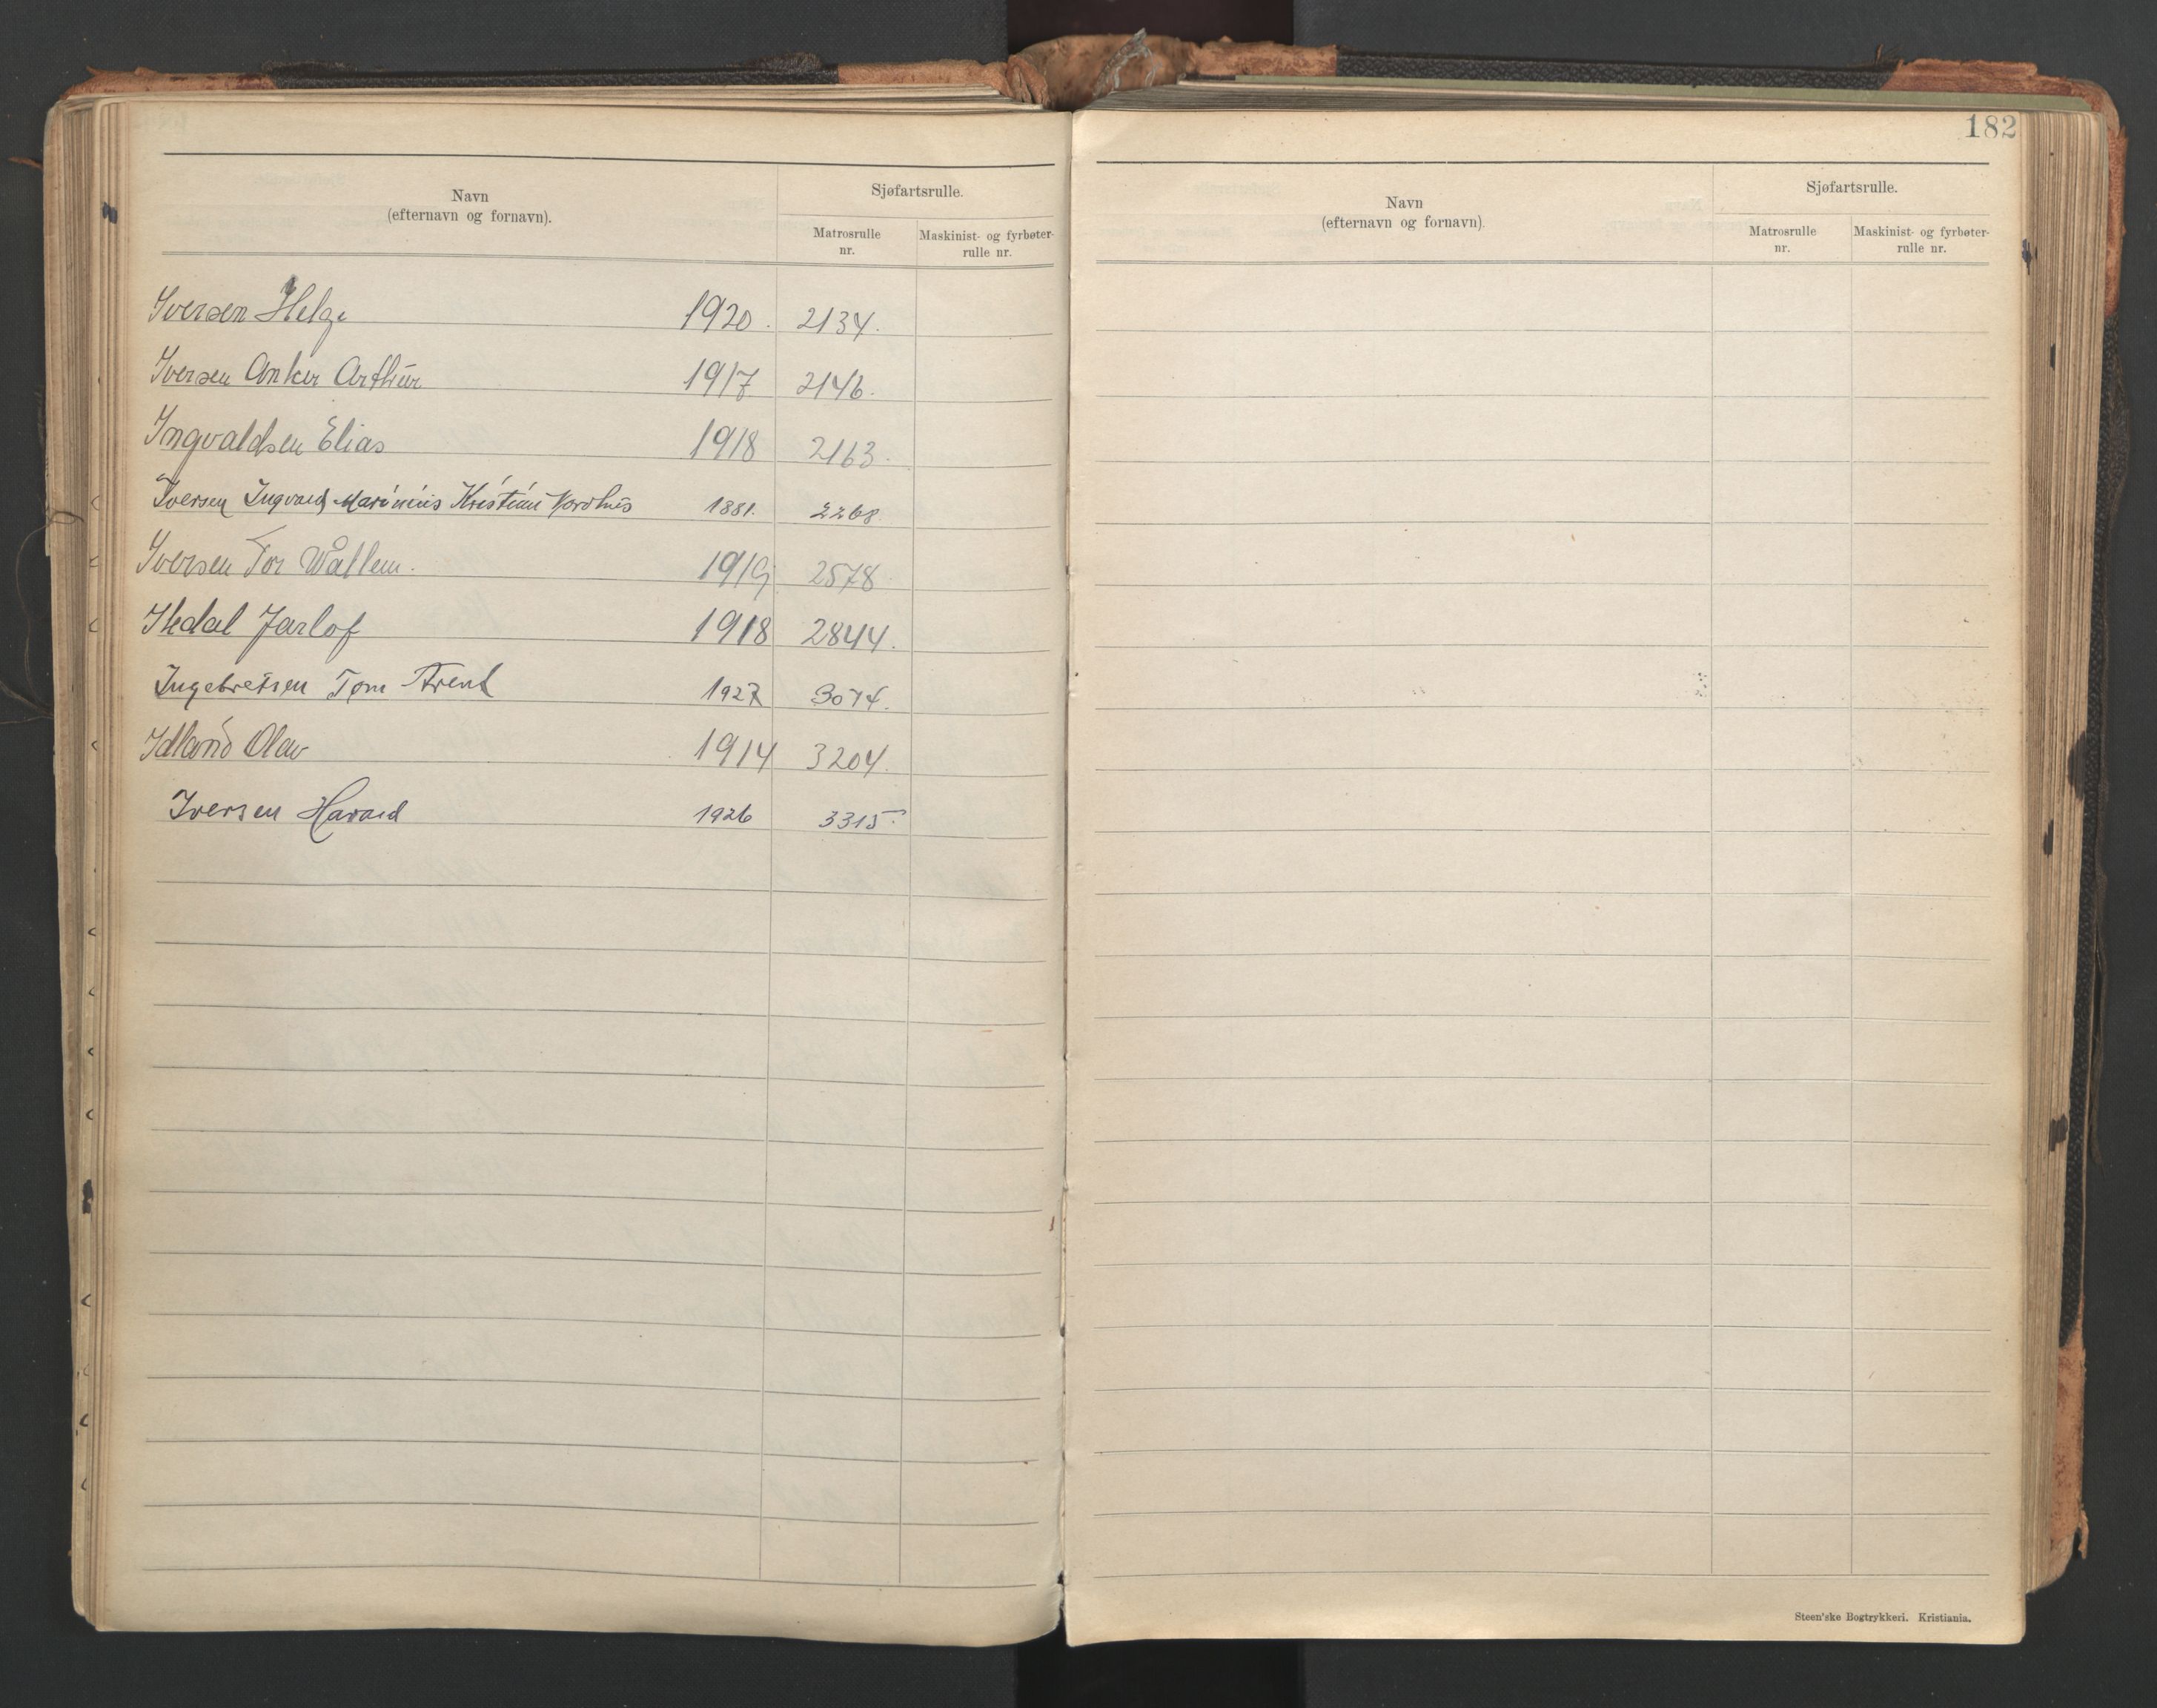 Navn
(efternavn og fornavn).
Sjøfartsrulle.
Matrosrulle
nr.
Maskinist- og fyrbøter-
rulle nr.
Iversen Helge 1920. 2134.
Iversen Anker Arthur 1917 2146.
Ingvaldsen Elias 1918 2163.
Iversen Ingvald Marinius Kristian Nordhus 1881. 2268
Iversen Tor Wallem. 1919 2578
Ikdal Jarlof 1918 2844.
Ingebretsen Tom Arent 1927 3074.
Idland Olav 1914 3204.
Iversen Harald 1926 3315.
182
Navn
(efternavn og fornavn).
Sjøfartsrulle.
Matrosrulle
nr.
Maskinist- og fyrbøter-
rulle nr.
Steen'ske Bogtrykkeri. Kristiania.